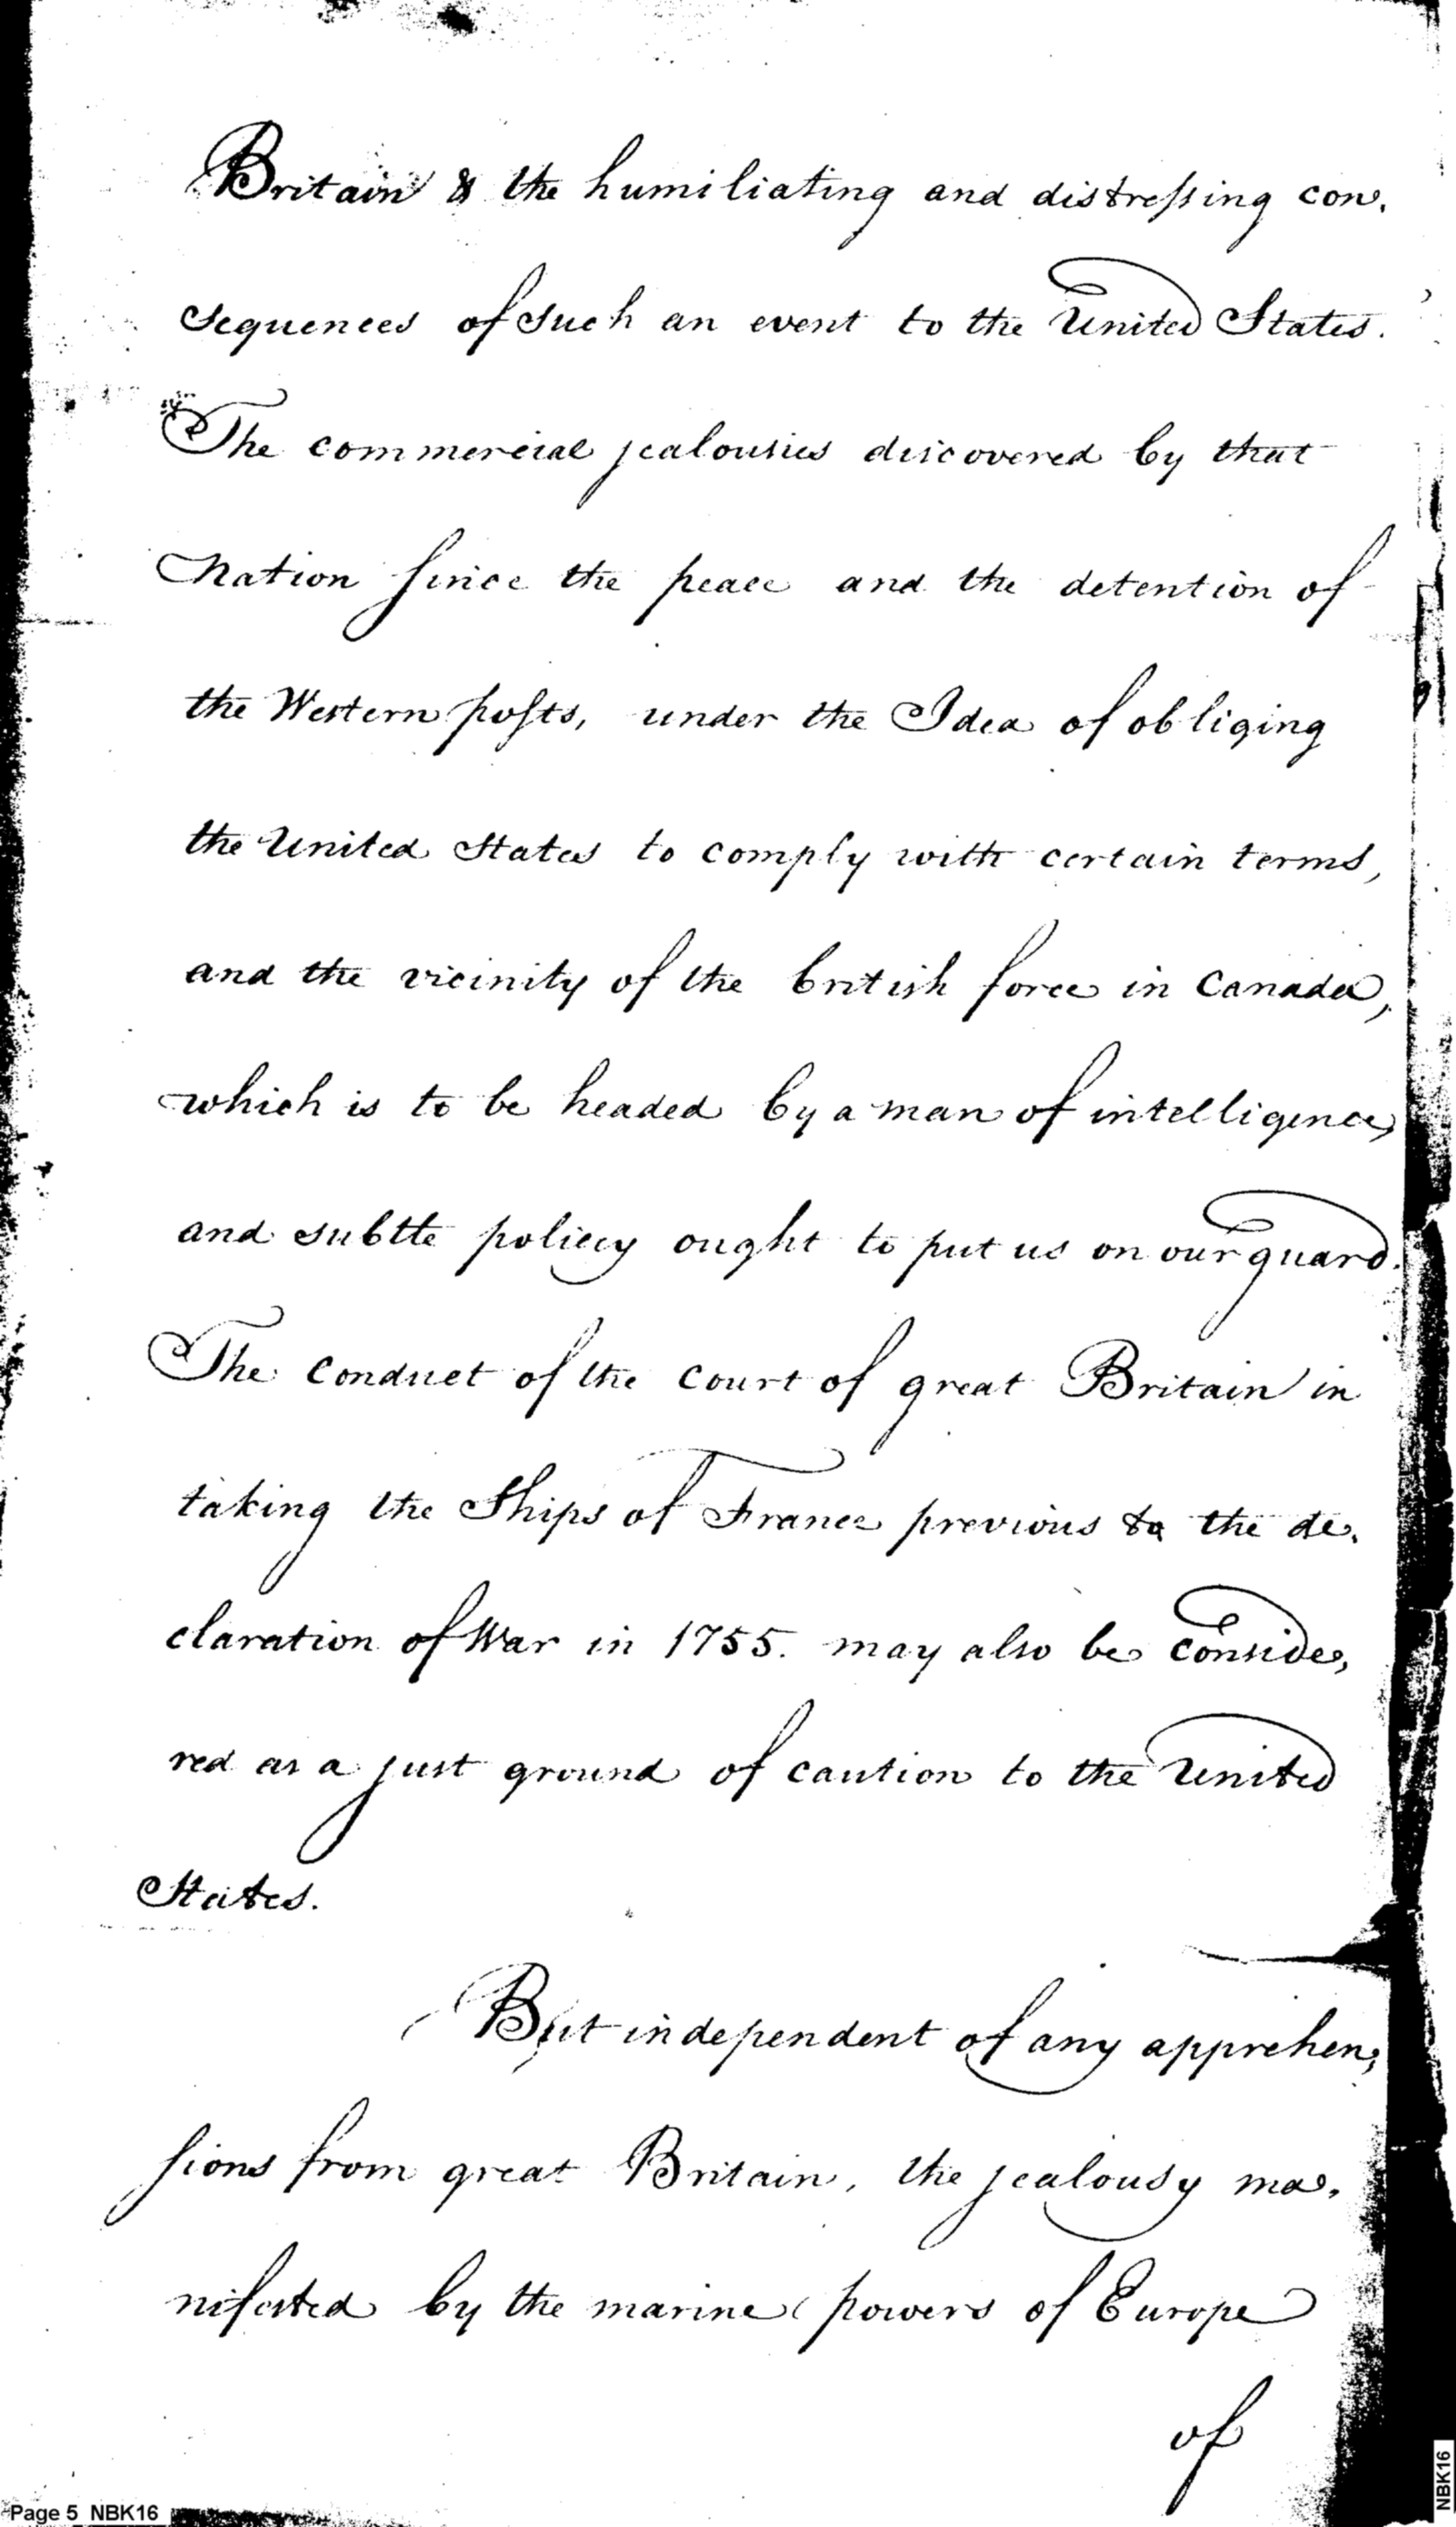 Britain & the humiliating and distreſsing con.
sequences of such an event to the United States.
The commercial jealousies discovered by that
Nation ſince the peace and the detention of
the Western poſts, under the Idea of obliging
the United States to comply with certain terms,
and the vicinity of the british force in Canada,
which is to be headed by a man of intelligence,
and subtle policy ought to put us on our guard.
The Conduct of the Court of great Britain in
taking the Ships of France previous to the de.
claration of War in 1755. may also be conside,
red as a just ground of caution to the United
States.
But independent of any apprehen,
ſions from great Britain, the jealousy ma.
nifested by the marine powers of Europe
of
Page 5 NBK16
NBK16